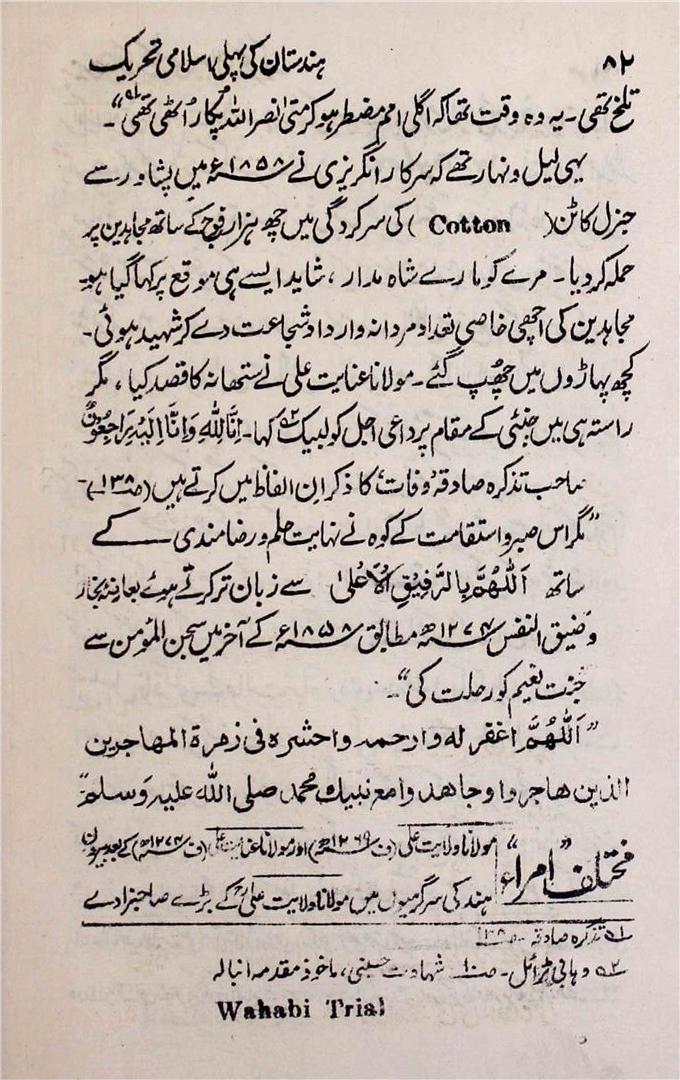 ۸۲ ہندستان کی پہلی اسلامی تحریک
تلخ تھی۔ یہ وہ وقت تھا کہ اگلی امم مضطر ہو کر متیٰ نصر اللہ پکار اٹھی تھی"۱؎۔
یہی لیل و نہار تھے کہ سرکار انگریزی نے ۱۸۵۸ء میں پشاور سے
جنرل کاٹن (Cotton) کی سرکردگی میں چھ ہزار فوج کے ساتھ مجاہدین پر
حملہ کر دیا۔ مرے کو مارے شاہ مدار، شاید ایسے ہی موقع پر کہا گیا ہو۔
مجاہدین کی اچھی خاصی تعداد مردانہ وار داد شجاعت دے کر شہید ہوئی۔
کچھ پہاڑوں میں چھپ گئے۔ مولانا عنایت علی نے ستھانہ کا قصد کیا، مگر
راستہ ہی میں چنئی کے مقام پر داعی اجل کو لبیک۲؎ کہا۔ اِنَّا لِلّٰہِ وَاِنَّا اِلَیْہِ رَاجِعُوْنَ
صاحب تذکرہ صادقہ وفات کا ذکر ان الفاظ میں کرتے ہیں (صـ۱۳۸)۔
"مگر اس صبر و استقامت کے کوہ نے نہایت حلم و رضامندی کے
ساتھ اَللّٰہُمَّ بِالرَّفِیْقِ الْاَعْلٰی سے زبان تر کرتے ہوئے بعارضہ بخار
و ضیق النفس ۱۲۷۴ھ مطابق ۱۸۵۸ء کے آخر میں سجن المؤمن سے
جنت نعیم کو رحلت کی"۔
"اَللّٰہُمَّ اغفر لہ وارحمہ واحشرہ فی زمرۃ المھاجرین
الذین ھاجروا وجاھدوا مع نبیك محمد صلی اللہ علیہ وسلم"
مختلف "امراء" مولانا ولایت علی (ف ۱۲۶۹ھ) اور مولانا عنایت علی (ف ۱۲۷۴ھ) کے بعد بیرون
ہند کی سرگرمیوں میں مولانا ولایت علیؒ کے بڑے صاحبزادے
۱؎ تذکرہ صادقہ صـ۱۳۸
۲؎ وہابی ٹرائل۔ صـ۱۰ شہادت حسینی، ماخوذ مقدمہ انبالہ
Wahabi Trial